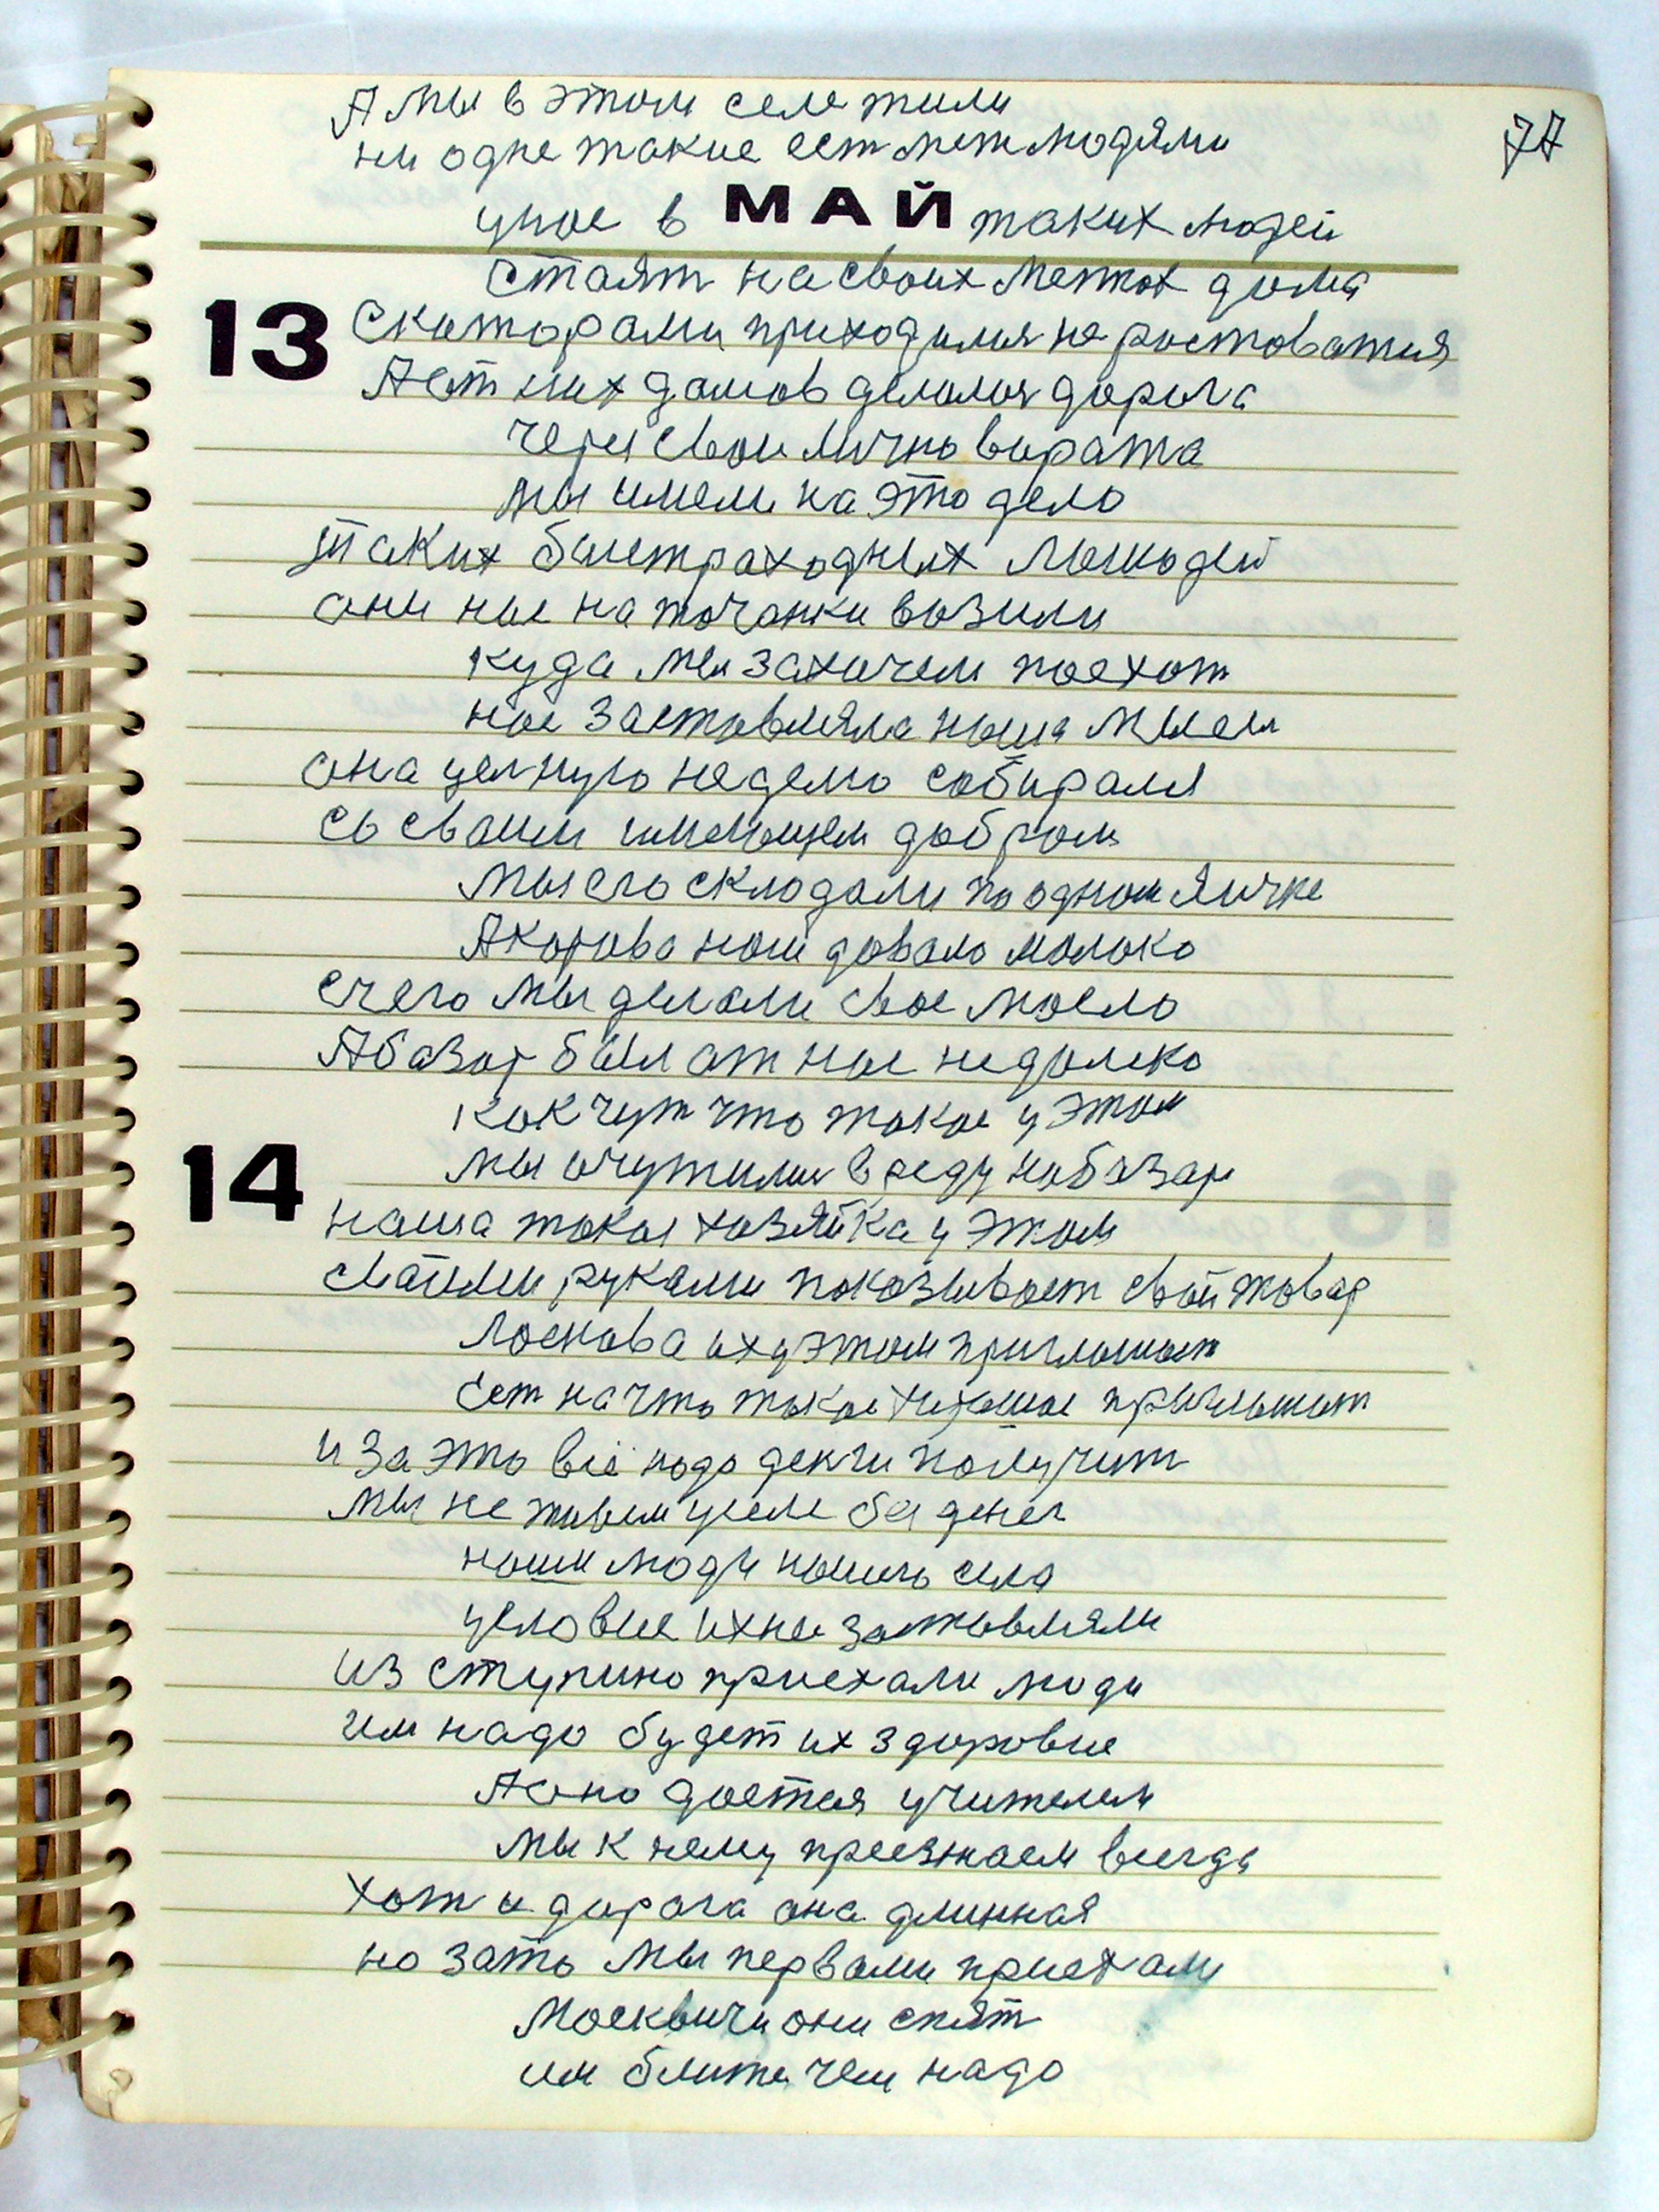 А мы в этом селе жили
ни одне такие ест меж людями
77
у нас в МАЙ таких людей
стаят на своих местах дома
13
с каторами приходился не растоватися
А от них домов делился дорога
через свои лично варата
мы имем на это дело
таких быстраходных лошодей
они нас на точанки возили
куда мы захочем поехат
нас заставляла наша мысл
она целную неделю собирался
со своим имеющем добром
мы его склодали по одном яичке
А корова нам довало молоко
с чего мы делоли свое масло
А базар был от нас недолеко
как чут что такое у этом
мы очутилис в ряду на базар
14
наша такая хозяйка у этом
сваими руками показывает свой товар
Ласкова их у этом приглошает
ест на что такое хорошое приглошат
и за это всё надо денги получит
мы не живем у селе без денег
наши люди нашего села
условие их не заставляли
из ступино приехали люди
им надо будет их здоровие
А оно дается учителем
мы к нему приезжаем всегда
хот и дарога она длинная
но зато мы первами приехали
Москвичи они спят
им ближе чем надо